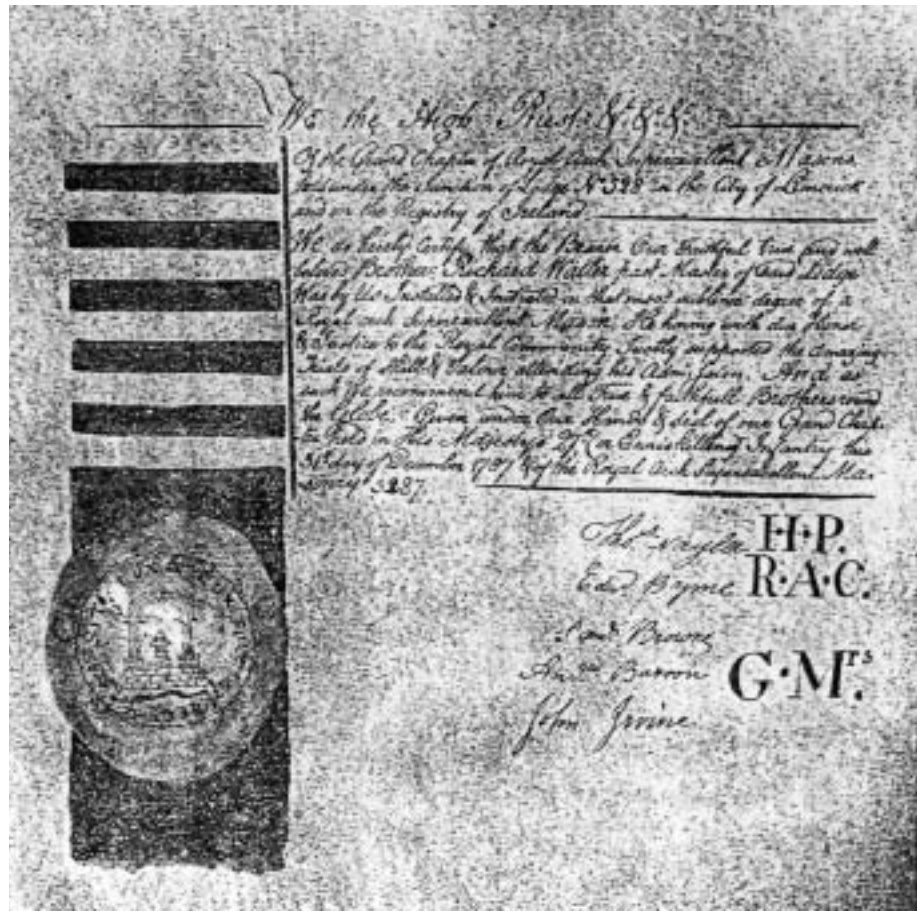 We the High Priest &c. &c. &c.
Of the Grand Chapter of Royal Arch Superexcellent Masons
under the Sanction of Lodge No 328 in the City of Limerick
and on the Registry of Ireland.
We do hereby Certify that the Bearer Our Faithful True and well
beloved Brother Richard Waller past Master of said Lodge
Was by Us Installed & Initiated in that most sublime degree of a
Royal Arch Superexcellent Mason. He having with due Honor
& Justice to the Royal Community Justly supported the amazing
Trials of Skill & Valour attending his Admission. And as
such We recommend him to all True & faithfull Brothers round
the Globe. Given under Our Hands & Seal of our Grand Chap-
ter held in His Majestys 27 or Enniskilling Infantry this
day of December 1787 & of the Royal Arch Superexcellent Ma-
sonry 3287.
Thos. Naylor H·P.
Edwd Byrne R·A·C.
Browne
Barron G·Mrs.
John Irvine